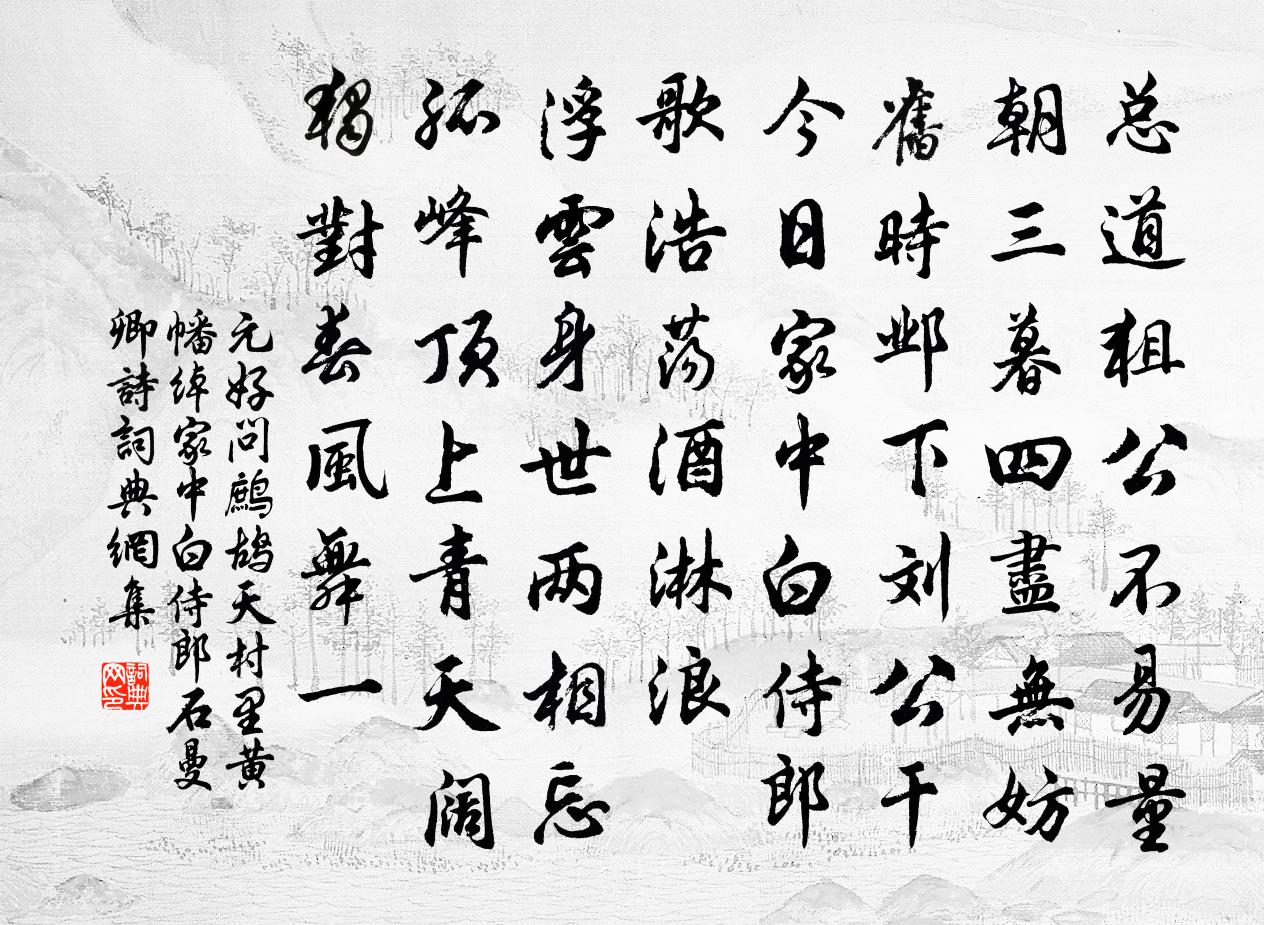 总道狙公不易量
朝三暮四盡無妨
舊時邺下刘公干
今日家中白侍郎
歌浩荡酒淋浪
浮雲身世两相忘
孤峰顶上青天阔
獨對春風舞一
元好问鷓鸪天村里黄
幡绰家中白侍郎石曼
卿詩詞典網集
詞典